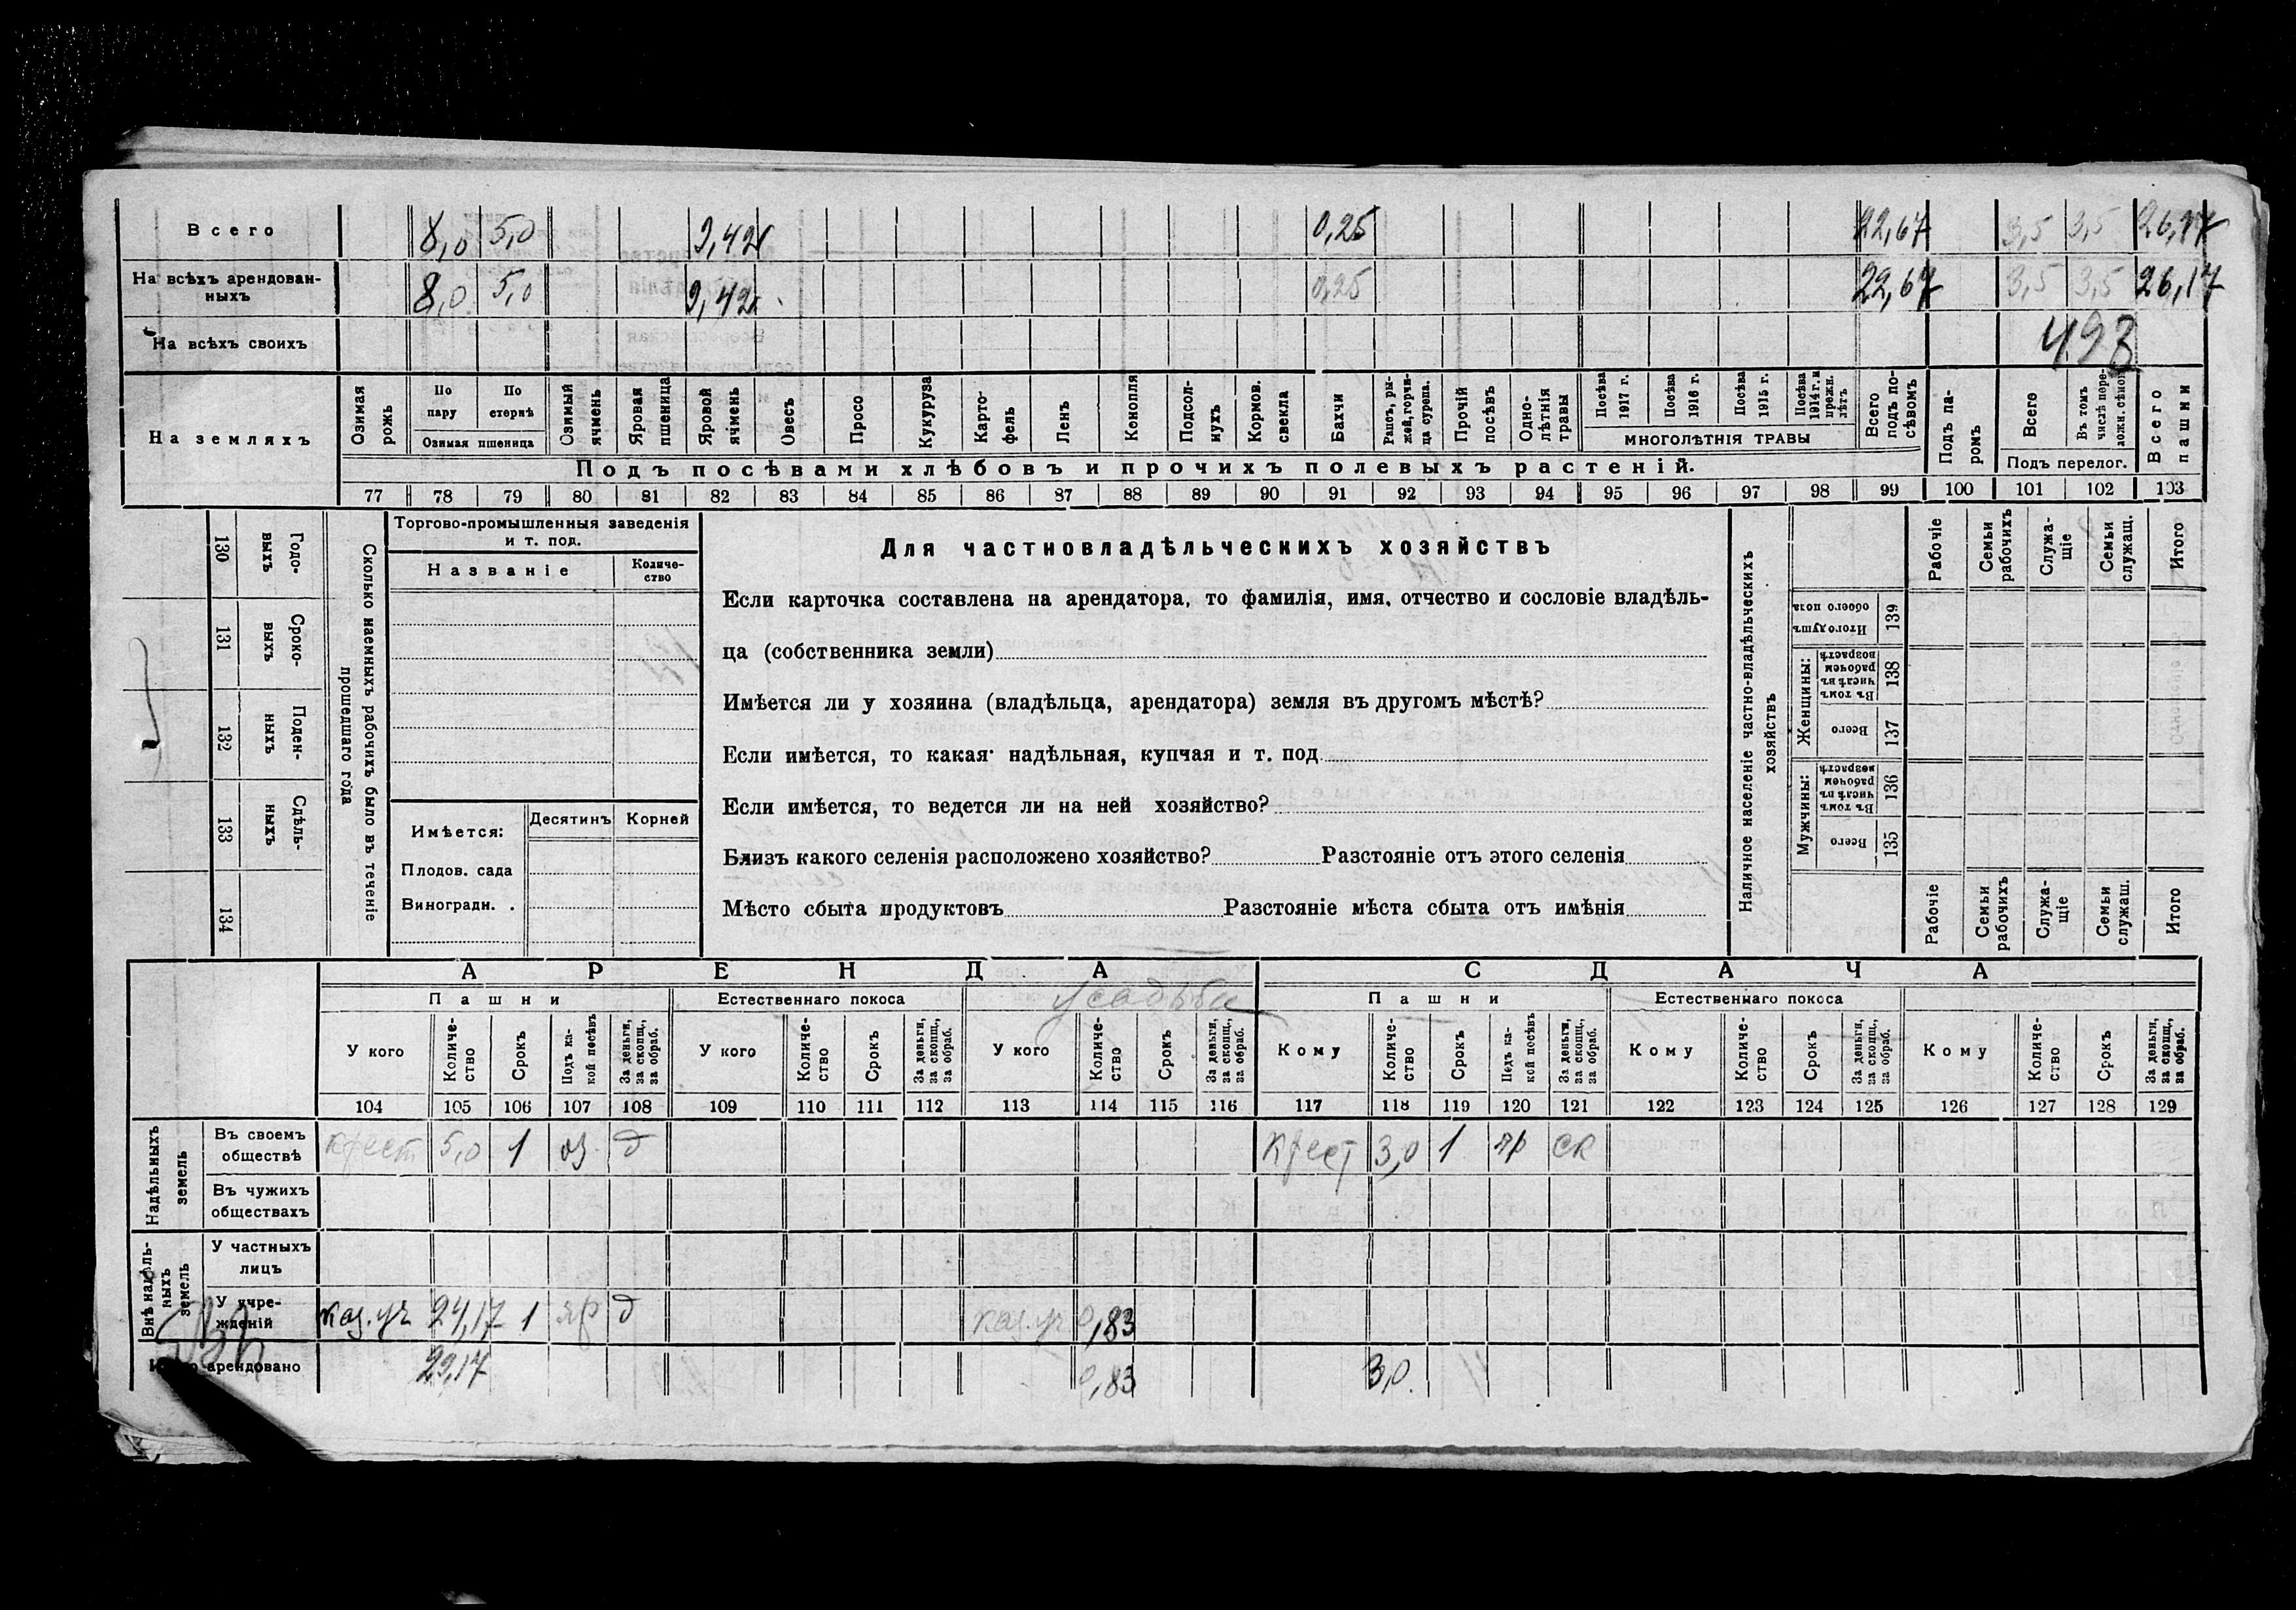 Всего 8,0 5,0 9,42 0,25 22,67 3,5 3,5 26,17
На всѣхъ арендован-
ныхъ 8,0 5,0 9,42 0,25 22,67 3,5 3,5 26,17
На всѣхъ своихъ
493
На земляхъ
Озимая рожь
По пару
По стернѣ
Озимая пшеница
Озимый ячмень
Яровая пшеница
Яровой ячмень
Овесъ
Просо
Кукуруза
Карто-
фель
Ленъ
Конопля
Подсол-
нухъ
Кормов.
свекла
Бахчи
Рапсъ, ры-
жей, горчи-
ца сурепа.
Прочій посѣвъ
Одно-
лѣтнія
травы
Посѣва 1917 г.
Посѣва 1916 г.
Посѣва 1915 г.
Посѣва 1914 г. и прежн. лѣтъ
МНОГОЛѢТНІЯ ТРАВЫ
Всего подъ по-
сѣвомъ
Подъ па-
ромъ
Всего
Въ томъ числѣ пере-
ложн. сѣнок.
Подъ перелог.
Всего пашни
Подъ посѣвами хлѣбовъ и прочихъ полевыхъ растеній.
77 78 79 80 81 82 83 84 85 86 87 88 89 90 91 92 93 94 95 96 97 98 99 100 101 102 103
130 Годо-
выхъ
131 Сроко-
выхъ
132 Поден-
ныхъ
133 Сдѣль-
ныхъ
134
Сколько наемныхъ рабочихъ было въ теченіе
прошедшаго года
Торгово-промышленныя заведенія
и т. под.
Названіе
Количе-
ство
Имѣется:
Десятинъ Корней
Плодов. сада
Виноградн. .
Для частновладѣльческихъ хозяйствъ
Если карточка составлена на арендатора, то фамилія, имя, отчество и сословіе владѣль-
ца (собственника земли)
Имѣется ли у хозяина (владѣльца, арендатора) земля въ другомъ мѣстѣ?
Если имѣется, то какая: надѣльная, купчая и т. под
Если имѣется, то ведется ли на ней хозяйство?
Близъ какого селенія расположено хозяйство? Разстояніе отъ этого селенія
Мѣсто сбыта продуктовъ Разстояніе мѣста сбыта отъ имѣнія
Наличное населеніе частно-владѣльческихъ
хозяйствъ
Рабочіе
Семьи рабочихъ
Служа-
щіе
Семьи служащ.
Итого
Итого душъ обоего пола 139
Женщины:
Въ томъ числѣ въ рабочем возрастѣ 138
Всего 137
Мужчины:
Въ томъ числѣ въ рабочем возрастѣ 136
Всего 135
Рабочіе
Семьи рабочихъ
Служа-
щіе
Семьи служащ.
Итого
АРЕНДА
СДАЧА
Пашни
Естественнаго покоса
усадьбы
Пашни
Естественнаго покоса
У кого
Количе-
ство
Срокъ
Подъ ка-
кой посѣвъ
За деньги, за скопщ., за обраб.
У кого
Количе-
ство
Срокъ
За деньги, за скопщ., за обраб.
У кого
Количе-
ство
Срокъ
За деньги, за скопщ., за обраб.
Кому
Количе-
ство
Срокъ
Подъ ка-
кой посѣвъ
За деньги, за скопщ., за обраб.
Кому
Количе-
ство
Срокъ
За деньги, за скопщ., за обраб.
Кому
Количе-
ство
Срокъ
За деньги, за скопщ., за обраб.
104 105 106 107 108 109 110 111 112 113 114 115 116 117 118 119 120 121 122 123 124 125 126 127 128 129
Надѣльныхъ земель
Въ своемъ
обществѣ крест 5,0 1 оз. д крест 3,0 1 яр ск
Въ чужихъ
обществахъ
Внѣ надѣль-
ныхъ земель
У частныхъ
лицъ
У учре-
жденій каз. уч 24,17 1 яр д каз. уч 0,83
арендовано 29,17 0,83 3,0